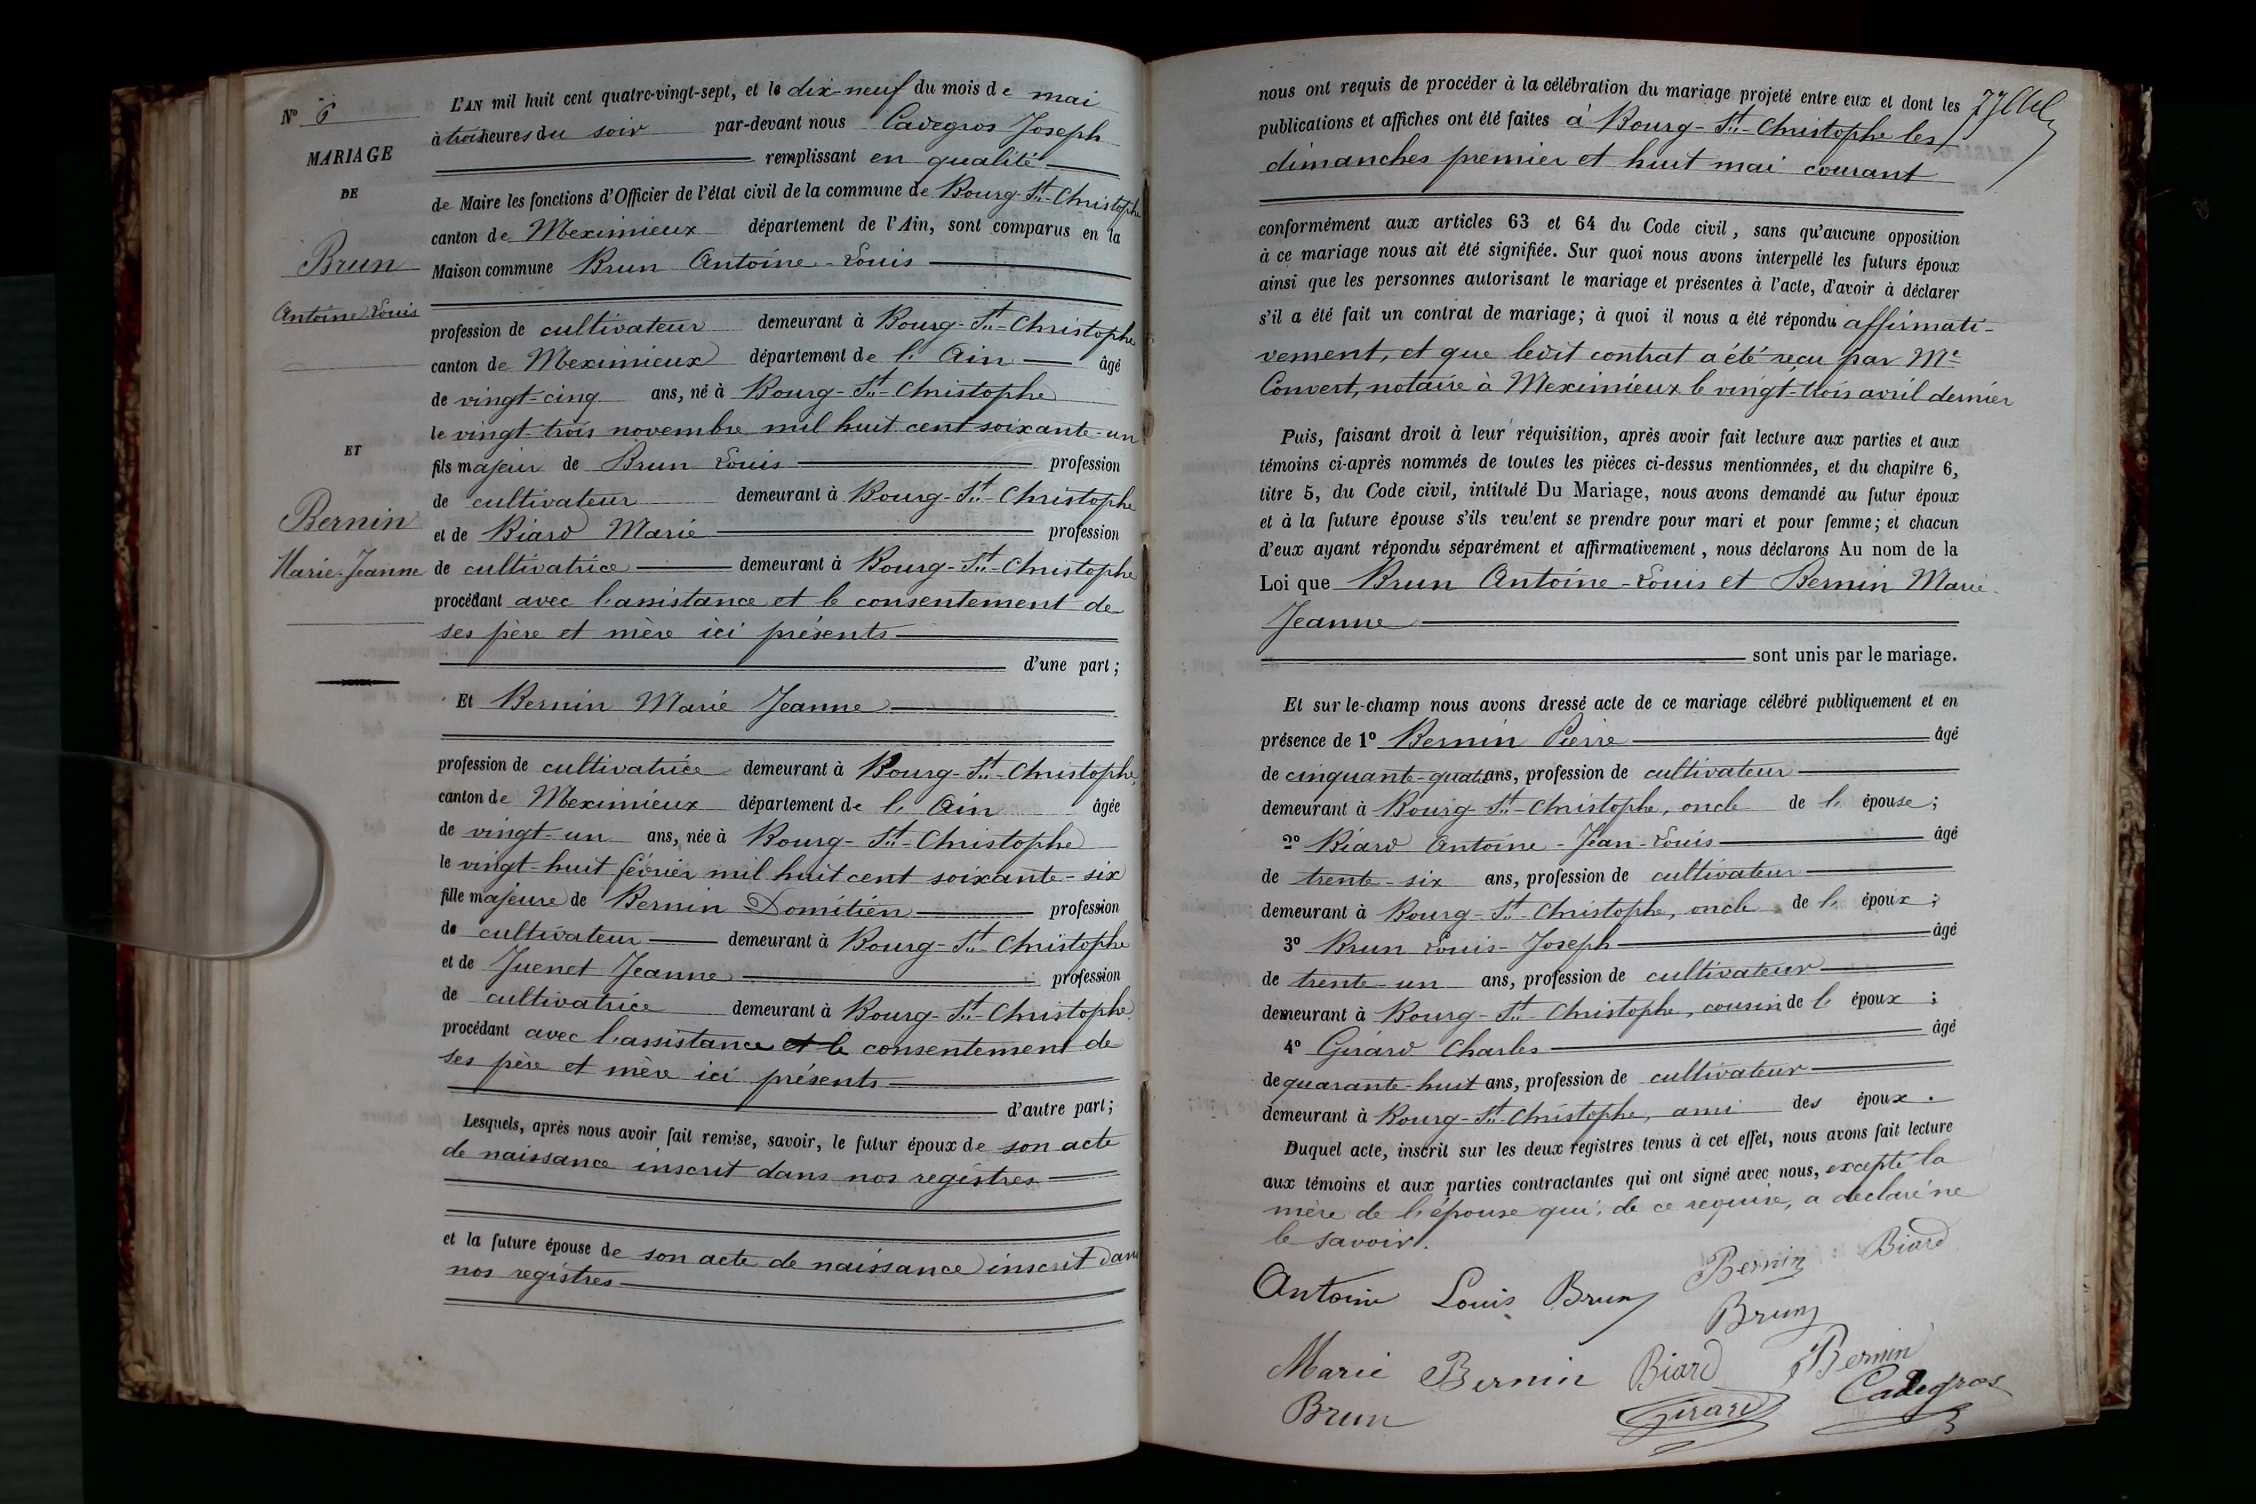 N° 6
MARIAGE
DE
Brun
Antoine Louis
ET
Bernin
Marie-Jeanne
L'AN mil huit cent quatre-vingt-sept, et le dix-neuf du mois de mai
à trois heures du soir par-devant nous Cadegros Joseph
remplissant en qualité
de Maire les fonctions d'Officier de l'état civil de la commune de Bourg-St-Christophe
canton de Meximieux département de l'Ain, sont comparus en la
Maison commune Brun Antoine-Louis
profession de cultivateur demeurant à Bourg-St-Christophe
canton de Meximieux département de l'Ain âgé
de vingt-cinq ans, né à Bourg-St-Christophe
le vingt-trois novembre mil huit cent soixante-un
fils majeur de Brun Louis profession
de cultivateur demeurant à Bourg-St-Christophe
et de Biard Marie profession
de cultivatrice demeurant à Bourg-St-Christophe
procédant avec l'assistance et le consentement de
ses père et mère ici présents
d'une part;
Et Bernin Marie Jeanne
profession de cultivatrice demeurant à Bourg-St-Christophe,
canton de Meximieux département de l'Ain âgée
de vingt-un ans, née à Bourg-St-Christophe
le vingt-huit février mil huit cent soixante-six
fille majeure de Bernin Domitien profession
de cultivateur demeurant à Bourg-St-Christophe
et de Juenet Jeanne profession
de cultivatrice demeurant à Bourg-St-Christophe
procédant avec l'assistance et le consentement de
ses père et mère ici présents
d'autre part;
Lesquels, après nous avoir fait remise, savoir, le futur époux de son acte
de naissance inscrit dans nos registres
et la future épouse de son acte de naissance inscrit dans
nos registres
nous ont requis de procéder à la célébration du mariage projeté entre eux et dont les
publications et affiches ont été faites à Bourg-St-Christophe les
dimanches premier et huit mai courant
conformément aux articles 63 et 64 du Code civil, sans qu'aucune opposition
à ce mariage nous ait été signifiée. Sur quoi nous avons interpellé les futurs époux
ainsi que les personnes autorisant le mariage et présentes à l'acte, d'avoir à déclarer
s'il a été fait un contrat de mariage; à quoi il nous a été répondu affirmati-
vement, et que ledit contrat a été reçu par Me
Convert, notaire à Meximieux le vingt-trois avril dernier
Puis, faisant droit à leur réquisition, après avoir fait lecture aux parties et aux
témoins ci-après nommés de toutes les pièces ci-dessus mentionnées, et du chapitre 6,
titre 5, du Code civil, intitulé Du Mariage, nous avons demandé au futur époux
et à la future épouse s'ils veulent se prendre pour mari et pour femme; et chacun
d'eux ayant répondu séparément et affirmativement, nous déclarons Au nom de la
Loi que Brun Antoine-Louis et Bernin Marie
Jeanne
sont unis par le mariage.
Et sur-le-champ nous avons dressé acte de ce mariage célébré publiquement et en
présence de 1° Bernin Pierre âgé
de cinquante-quatre ans, profession de cultivateur
demeurant à Bourg-St-Christophe, oncle de l'épouse;
2° Biard Antoine-Jean-Louis âgé
de trente-six ans, profession de cultivateur
demeurant à Bourg-St-Christophe, oncle de l'époux;
3° Brun Louis-Joseph âgé
de trente-un ans, profession de cultivateur
demeurant à Bourg-St-Christophe, cousin de l'époux;
4° Girard Charles âgé
de quarante-huit ans, profession de cultivateur
demeurant à Bourg-St-Christophe, ami des époux.
Duquel acte, inscrit sur les deux registres tenus à cet effet, nous avons fait lecture
aux témoins et aux parties contractantes qui ont signé avec nous, excepté la
mère de l'épouse qui, de ce requise, a déclaré ne
le savoir.
Bernin Biard
Antoine Louis Brun
Brun
Marie Bernin Biard Bernin
Brun Girard Cadegros